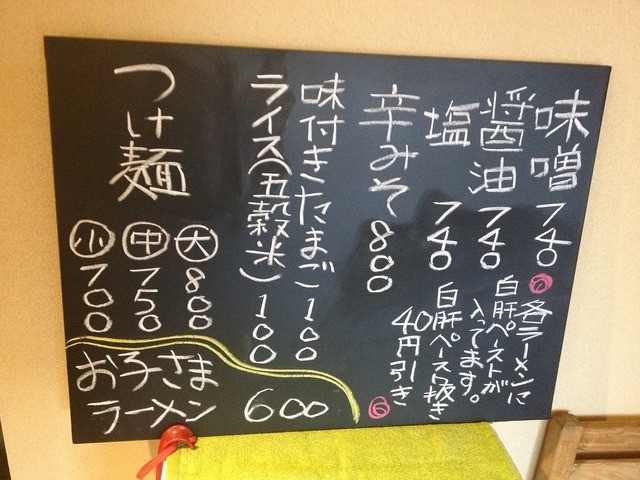 味噌 740
醤油 740
塩 740
各ラーメンに
白肝ペーストが
入ってます。
白肝ペースト抜き
40円引き
辛みそ 800
味付きたまご 100
ライス(五穀米) 100
つけ麺
大 800
中 750
小 700
お子さま
ラーメン 600